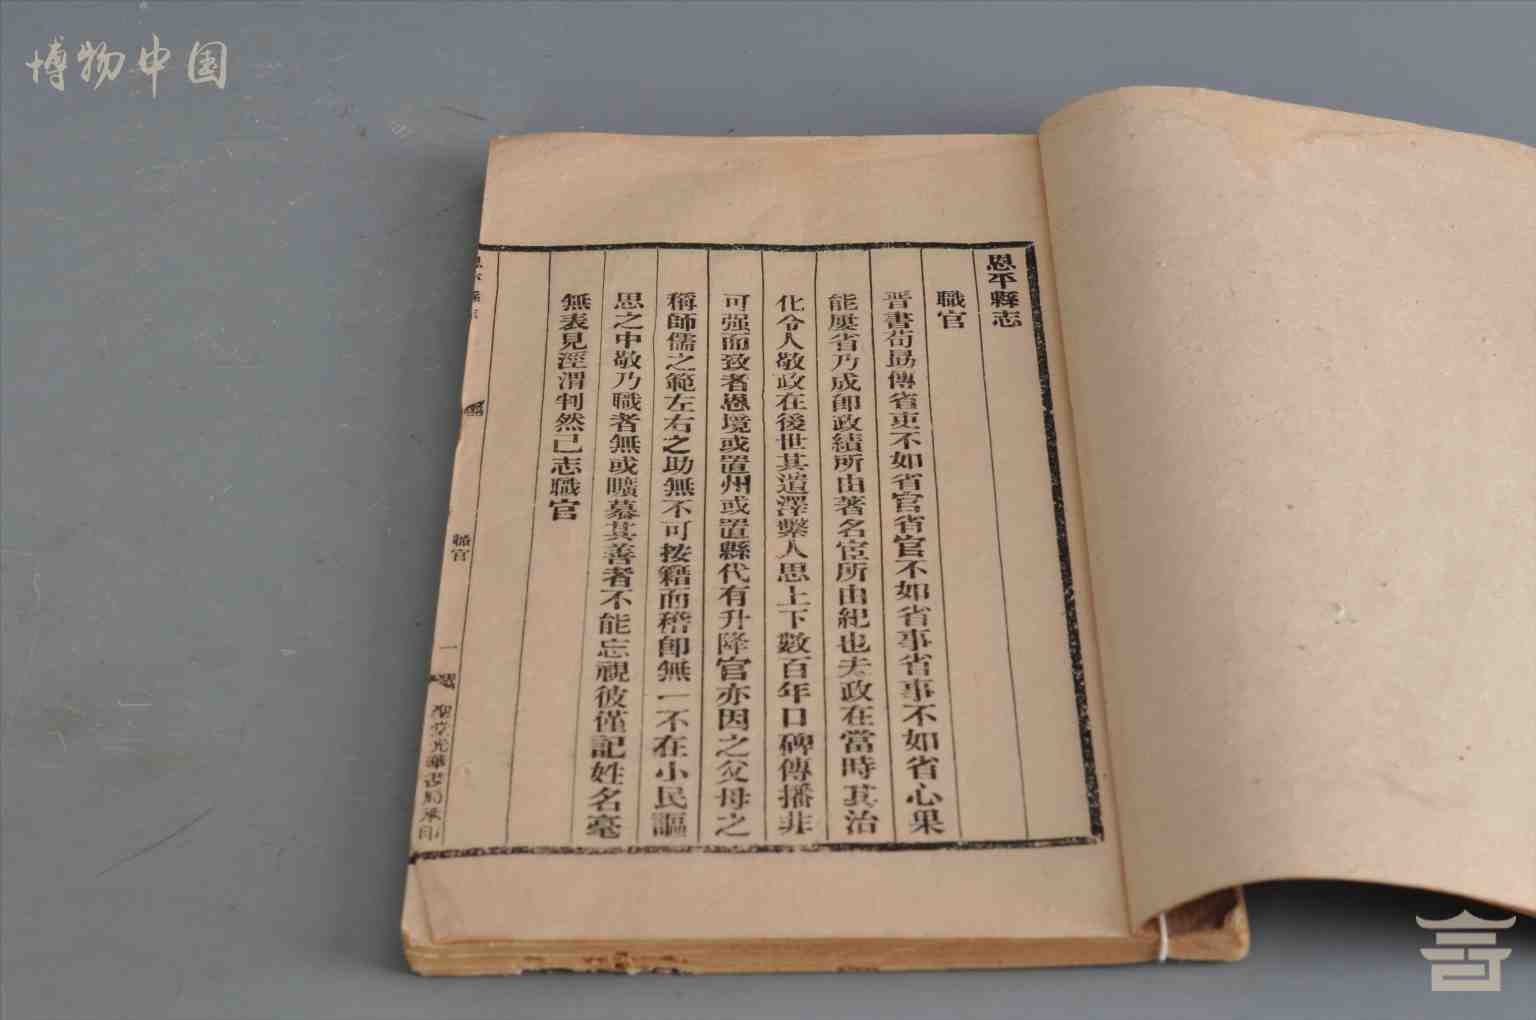 博物中国
恩平縣志
職官
晋書荀勗傳省吏不如省官省官不如省事省事不如省心果
能屢省乃成卽政績所由著名宦所由紀也夫政在當時其治
化令人敬政在後世其遺澤繫人思上下數百年口碑傳播非
可强而致者恩境或置州或置縣代有升降官亦因之父母之
稱師儒之範左右之助無不可按籍而稽卽無一不在小民謳
思之中敬乃職者無或曠慕其善者不能忘視彼僅記姓名毫
無表見涇渭判然已志職官
職官
一
聖堂光華書局承印